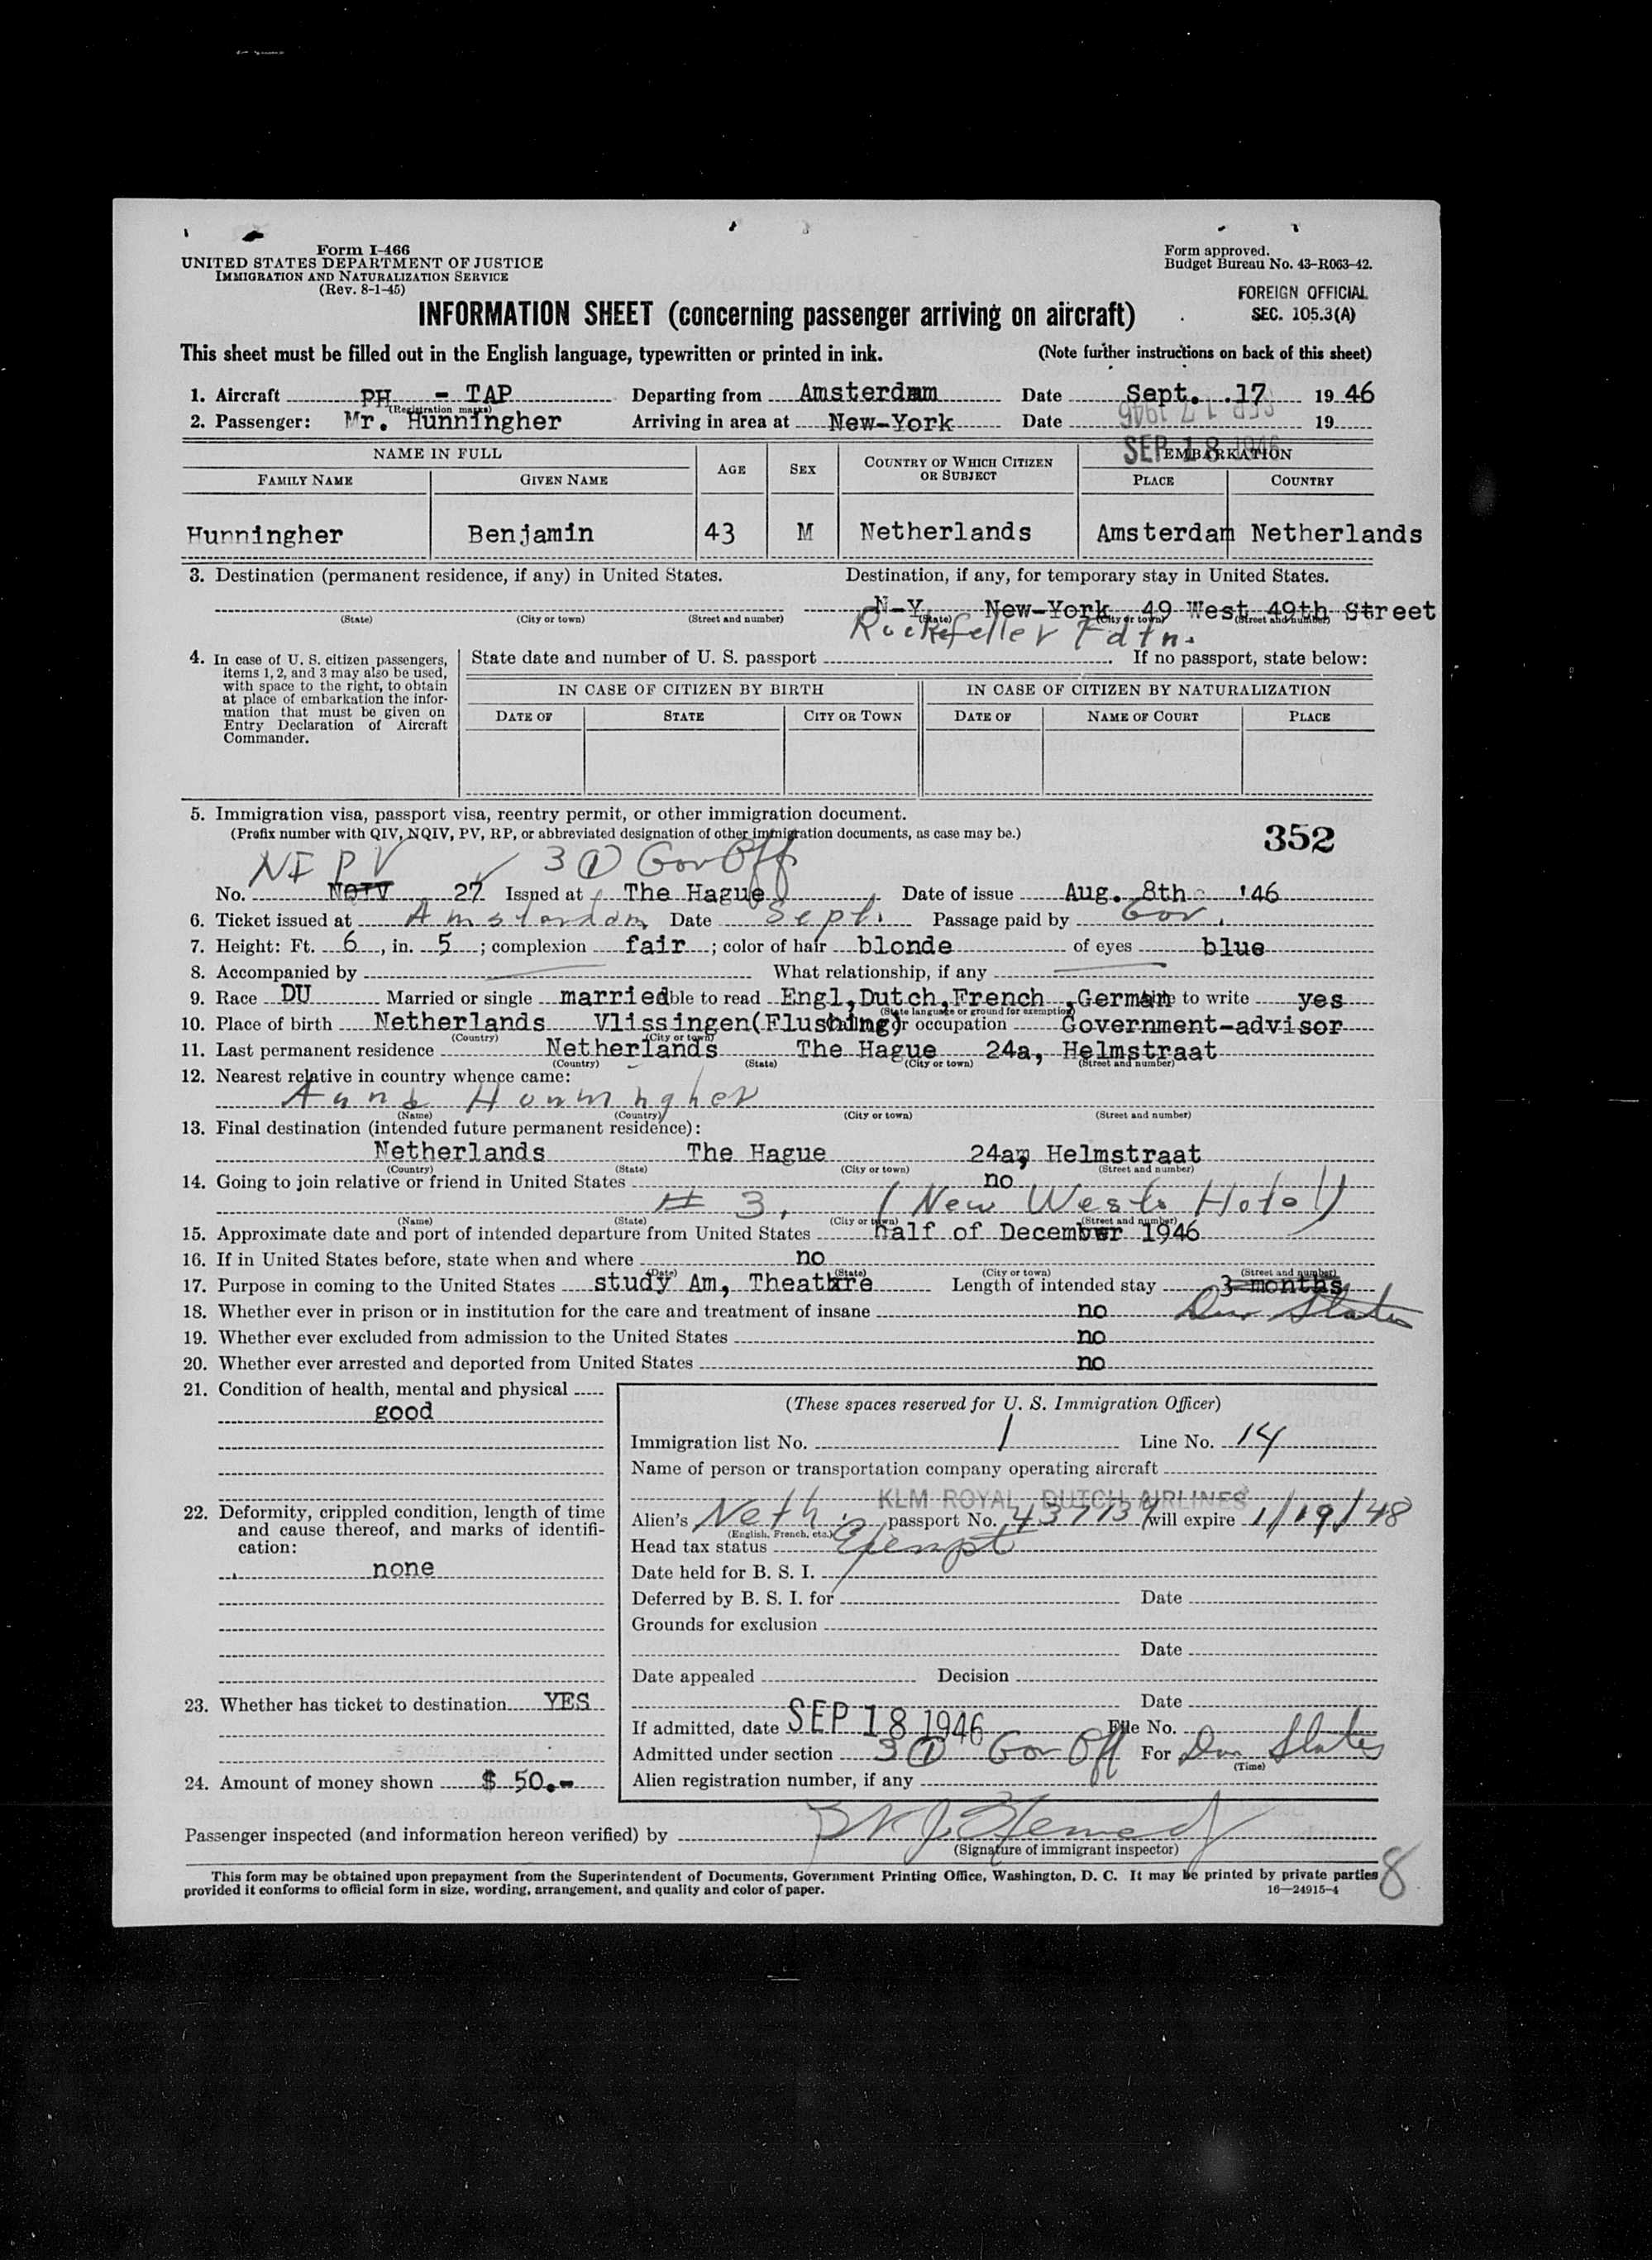 Form I-466
UNITED STATES DEPARTMENT OF JUSTICE
IMMIGRATION AND NATURALIZATION SERVICE
(Rev. 8-1-45)
Form approved.
Budget Bureau No. 43-R063-42.
FOREIGN OFFICIAL
SEC. 105.3(A)
INFORMATION SHEET (concerning passenger arriving on aircraft)
This sheet must be filled out in the English language, typewritten or printed in ink. (Note further instructions on back of this sheet)
1. Aircraft PH - TAP Departing from Amsterdam Date Sept. 17 1946
(Registration marks)
2. Passenger: Mr. Hunningher Arriving in area at New-York Date SEP 17 1946 19
SEP 18 1946
NAME IN FULL AGE SEX COUNTRY OF WHICH CITIZEN OR SUBJECT EMBARKATION
FAMILY NAME GIVEN NAME PLACE COUNTRY
Hunningher Benjamin 43 M Netherlands Amsterdam Netherlands
3. Destination (permanent residence, if any) in United States. Destination, if any, for temporary stay in United States.
N-Y. New-York 49 West 49th Street
(State) (City or town) (Street and number) (State) (City or town) (Street and number)
Rockefeller Fdtn.
4. In case of U. S. citizen passengers, items 1, 2, and 3 may also be used, with space to the right, to obtain at place of embarkation the information that must be given on Entry Declaration of Aircraft Commander.
State date and number of U. S. passport . If no passport, state below:
IN CASE OF CITIZEN BY BIRTH IN CASE OF CITIZEN BY NATURALIZATION
DATE OF STATE CITY OR TOWN DATE OF NAME OF COURT PLACE
5. Immigration visa, passport visa, reentry permit, or other immigration document.
(Prefix number with QIV, NQIV, PV, RP, or abbreviated designation of other immigration documents, as case may be.)
352
NI PV 3 (1) Gov Off
No. NQIV 27 Issued at The Hague Date of issue Aug. 8th '46
6. Ticket issued at Amsterdam Date Sept. Passage paid by Gov.
7. Height: Ft. 6, in. 5; complexion fair; color of hair blonde of eyes blue
8. Accompanied by What relationship, if any
9. Race DU Married or single married able to read Engl, Dutch, French, German able to write yes
(State language or ground for exemption)
10. Place of birth Netherlands Vlissingen(Flushing) Calling or occupation Government-advisor
(Country) (City or town)
11. Last permanent residence Netherlands The Hague 24a, Helmstraat
(Country) (State) (City or town) (Street and number)
12. Nearest relative in country whence came:
(Name) (Country) (City or town) (Street and number)
13. Final destination (intended future permanent residence):
Netherlands The Hague 24a, Helmstraat
(Country) (State) (City or town) (Street and number)
14. Going to join relative or friend in United States no
# 3. (New Westo Hotel)
(Name) (State) (City or town) (Street and number)
15. Approximate date and port of intended departure from United States half of December 1946
16. If in United States before, state when and where no
(Date) (State) (City or town) (Street and number)
17. Purpose in coming to the United States study Am, Theatre Length of intended stay 3 months
Dur Status
18. Whether ever in prison or in institution for the care and treatment of insane no
19. Whether ever excluded from admission to the United States no
20. Whether ever arrested and deported from United States no
21. Condition of health, mental and physical
good
22. Deformity, crippled condition, length of time and cause thereof, and marks of identification:
none
23. Whether has ticket to destination YES
24. Amount of money shown $ 50.-
(These spaces reserved for U. S. Immigration Officer)
Immigration list No. 1 Line No. 14
Name of person or transportation company operating aircraft
KLM ROYAL DUTCH AIRLINES
Alien's Neth. passport No. 437137 will expire 1/19/48
(English, French, etc.)
Head tax status Exempt
Date held for B. S. I.
Deferred by B. S. I. for Date
Grounds for exclusion
Date
Date appealed Decision
Date
If admitted, date SEP 18 1946 File No.
Admitted under section 3 (1) Gov Off For Dur Status
(Time)
Alien registration number, if any
Passenger inspected (and information hereon verified) by
(Signature of immigrant inspector)
This form may be obtained upon prepayment from the Superintendent of Documents, Government Printing Office, Washington, D. C. It may be printed by private parties
provided it conforms to official form in size, wording, arrangement, and quality and color of paper. 16—24915-4
8